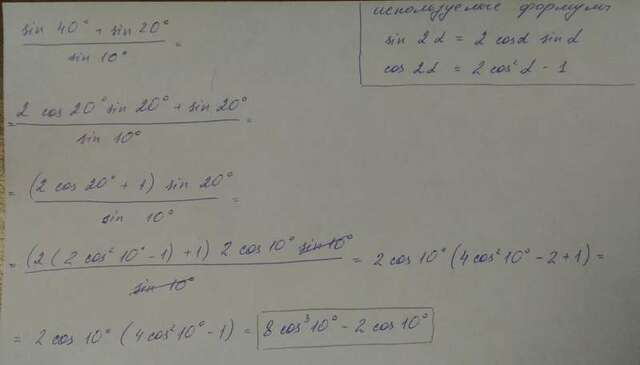 используемые формулы
sin 2α = 2 cosα sinα
cos 2α = 2 cos²α - 1
sin 40° + sin 20°
sin 10° =
= 2 cos 20° sin 20° + sin 20°
sin 10° =
= (2 cos 20° + 1) sin 20°
sin 10° =
= (2 (2 cos² 10° - 1) + 1) 2 cos 10° sin 10°
sin 10° = 2 cos 10° (4 cos² 10° - 2 + 1) =
= 2 cos 10° (4 cos² 10° - 1) = 8 cos³ 10° - 2 cos 10°